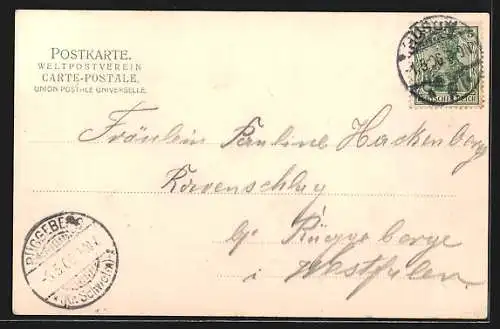 POSTKARTE.
WELTPOSTVEREIN
CARTE-POSTALE.
UNION POSTALE UNIVERSELLE.
Fräulein Pauline Hackenberg
b/ Rüggeberge
i Westfalen
DEUTSCHES REICH
RÜGGEBERG
(Kr. Schwelm)